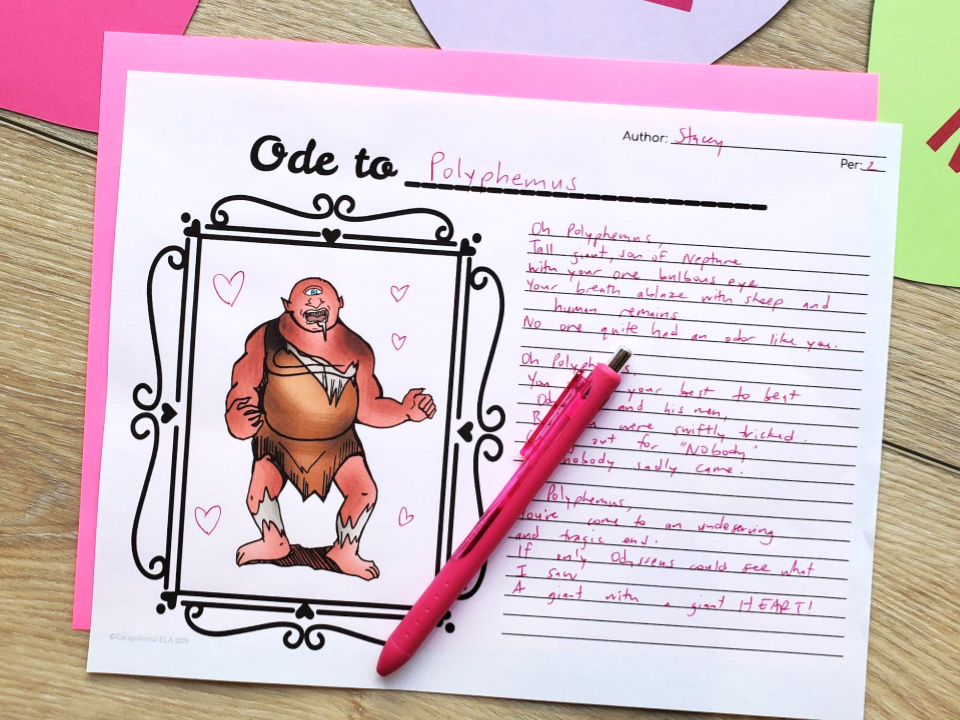 Author: Stacey
Per: 2
Ode to Polyphemus
Oh Polyphemus,
Tall giant, son of Neptune
with your one bulbous eye
Your breath ablaze with sheep and
human remains
No one quite had an odor like you.
Oh Polyphemus
You your best to beat
and his men,
were swiftly tricked.
out for "Nobody"
nobody sadly came.
Polyphemus,
You're come to an undeserving
and tragic end.
If only Odysseus could see what
I saw
A giant with a giant HEART!
©Exceptional ELA 2019